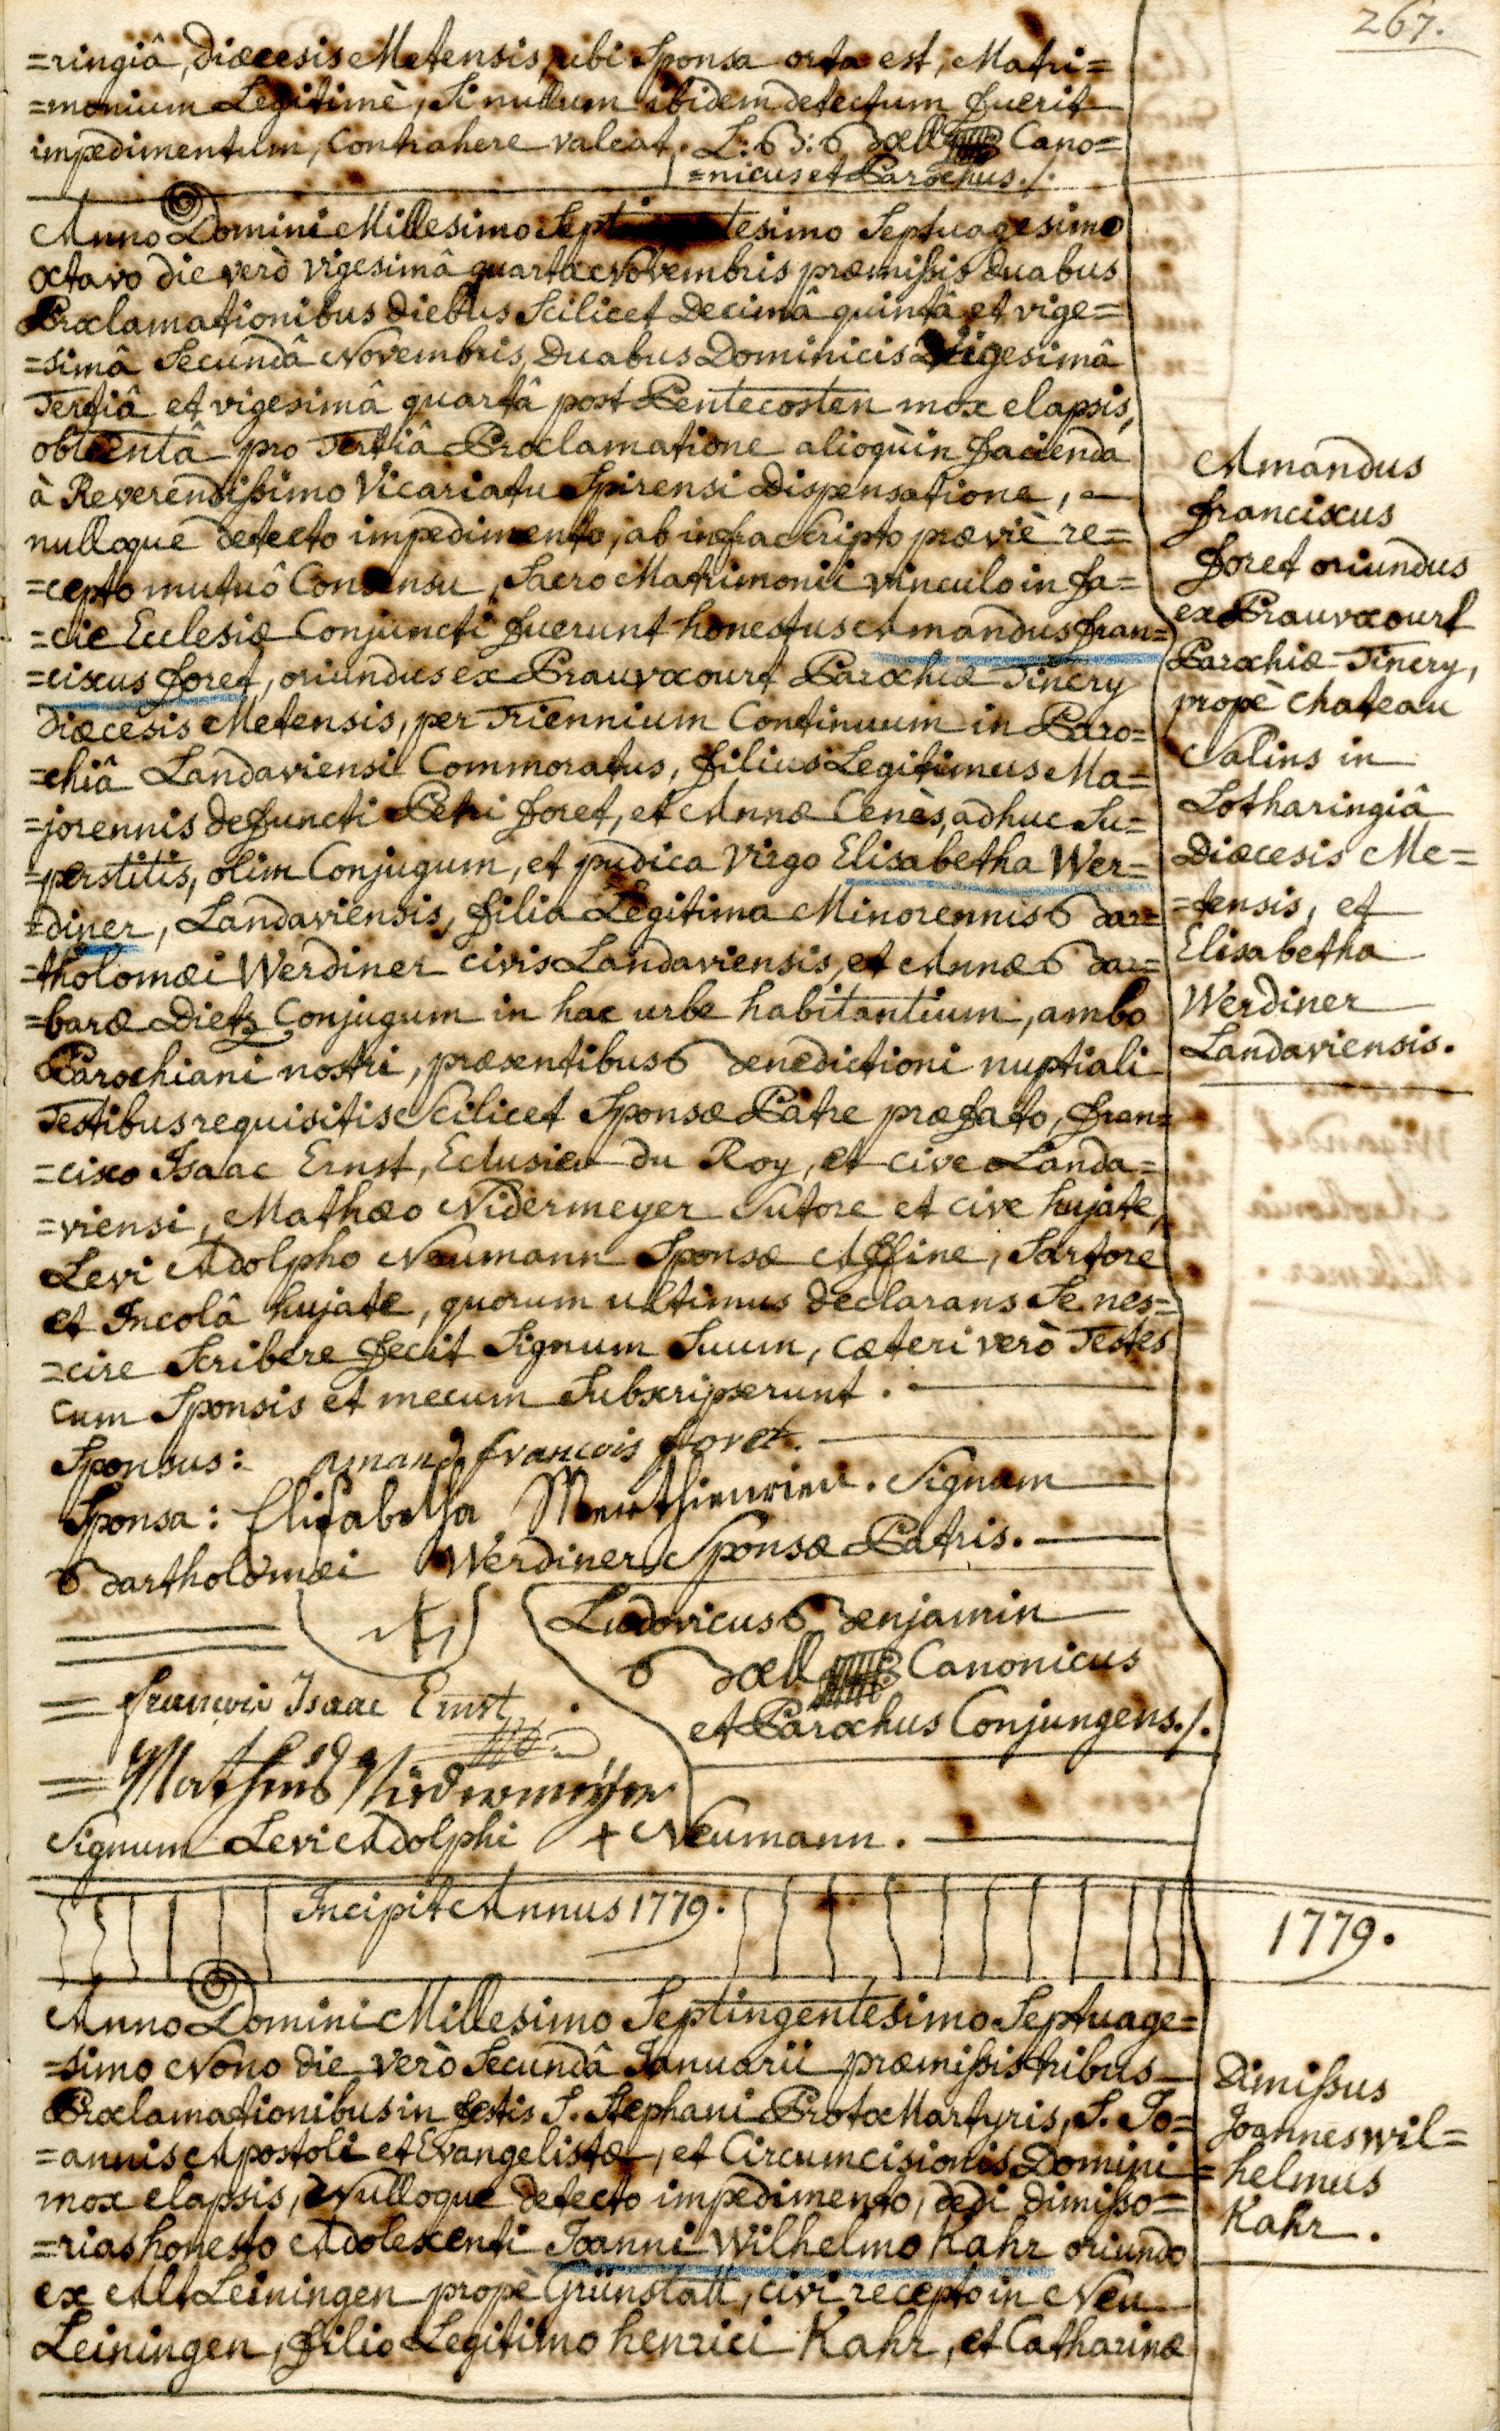 267.
=ringiâ, Diœcesis Metensis, ubi Sponsa orta est, Matri=
=monium Legitimè, Si nullum ibidem detectum fuerit
impedimentum, Contrahere valeat. L: B: Boell Cano=
=nicus et Parochus./.
Anno Domini Millesimo Septingentesimo Septuagesimo
octavo die verò vigesimâ quarta Novembris præmissis duabus
Proclamationibus diebus Scilicet Decimâ quintâ et vige=
=simâ Secundâ Novembris, duabus Dominicis Vigesimâ
Tertiâ et vigesimâ quartâ post Pentecosten mox elapsis,
obtentâ pro Tertiâ Proclamatione alioquin facienda
à Reverendissimo Vicariatu Spirensi Dispensatione,
nulloque detecto impedimento, ab infrascripto præviè re=
=cepto mutuô Consensu, Sacro Matrimonii vinculo in fa=
=cie Ecclesiæ Conjuncti fuerunt honestus Amandus fran=
=ciscus foret, oriundus ex Prauvocourt Parochiæ Tincry
Diœcesis Metensis, per Triennium Continuum in Paro=
=chiâ Landaviensi Commoratus, filius Legitimus Ma=
=jorennis defuncti Petri foret, et Annæ Cenès, adhuc Su=
=perstitis, olim Conjugum, et pudica virgo Elisabetha Wer=
=diner, Landaviensis, filia Legitima Minorennis Bar=
=tholomæi Werdiner civis Landaviensis, et Annæ Bar=
=baræ Dietz Conjugum in hac urbe habitantium, ambo
Parochiani nostri, præsentibus Benedictioni nuptiali
Testibus requisitis Scilicet Sponsæ Patre præfato, fran=
=cisco Isaac Ernst, Eclusier du Roy, et cive Landa=
=viensi, Mathæo Nidermeyer Sutore et cive hujate,
Levi Adolpho Neumann Sponsæ Affine, Sartore
et Incolâ hujate, quorum ultimus declarans Se nes=
=cire Scribere fecit Signum Suum, cæteri verò Testes
cum Sponsis et mecum Subscripserunt.
Sponsus: amand francois foret.
Sponsa: Elisabetha Werthienrien. Signum
Bartholomæi Werdiner Sponsæ Patris.
Ludovicus Benjamin
Boell Canonicus
et Parochus Conjungens./.
= francois Isaac Ernst
= Matheus Niedermeyer
Signum Levi Adolphi + Neumann.
Amandus
franciscus
foret oriundus
ex Prauvocourt
Parochiæ Tincry,
propè Chateau
Salins in
Lotharingiâ
Diœcesis Me=
=tensis, et
Elisabetha
Werdiner
Landaviensis.
Incipit Annus 1779.
1779.
Anno Domini Millesimo Septingentesimo Septuage=
=simo Nono die verò Secundâ Januarii præmissis tribus
Proclamationibus in festis S. Stephani ProtoMartyris, S. Jo=
=annis Apostoli et Evangelistæ, et Circumcisionis Domini
mox elapsis, Nulloque detecto impedimento, dedi dimisso=
=rias honesto Adolescenti Joanni Wilhelmo Kahr oriundo
ex Alt Leiningen propè Grünstatt, civi recepto in Neu
Leiningen, filio Legitimo henrici Kahr, et Catharinæ
Dimissus
Joannes Wil=
=helmus
Kahr.